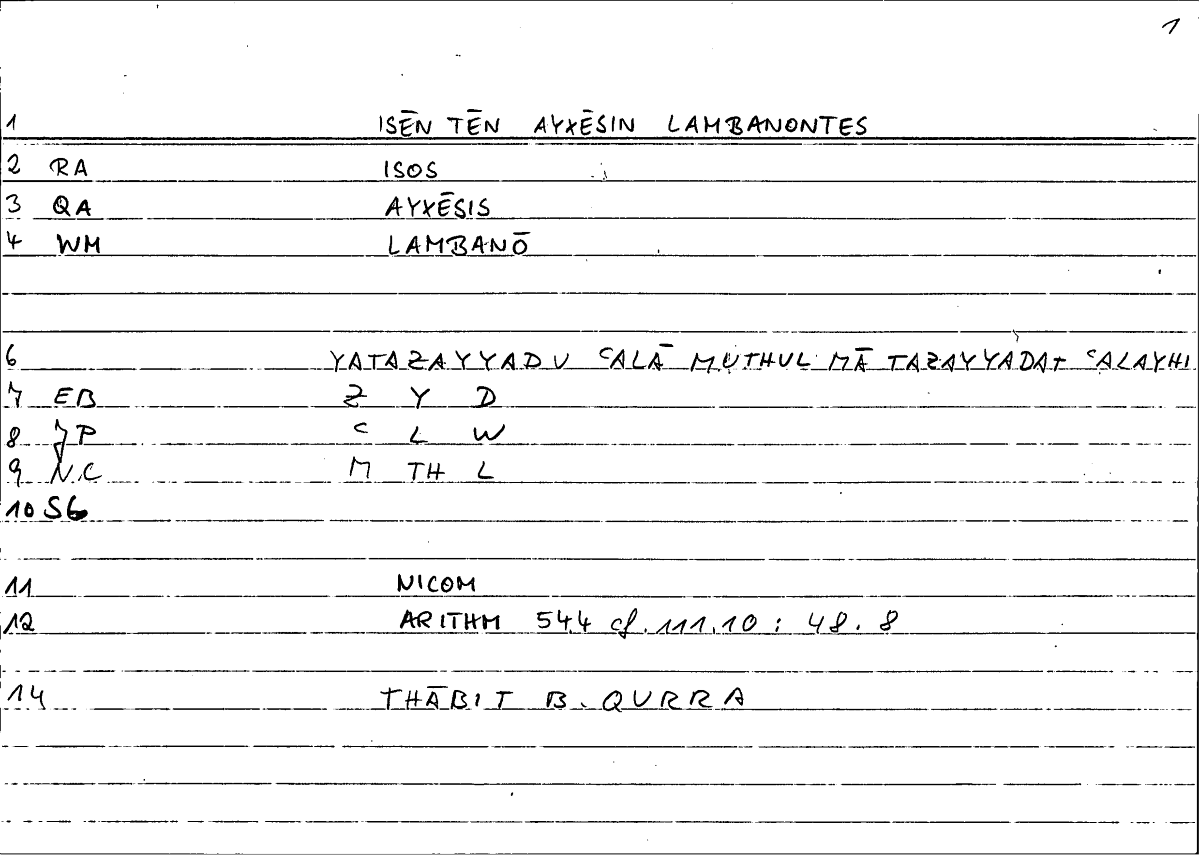 1
1 ISĒN TĒN AYXĒSIN LAMBANONTES
2 RA ISOS
3 QA AYXĒSIS
4 WM LAMBANŌ
6 YATAZAYYADU ʿALĀ MUTHUL MĀ TAZAYYADAT ʿALAYHI
7 EB Z Y D
8 JP ʿ L W
9 NC M TH L
10 SG
11 NICOM
12 ARITHM 54.4 cf. 111.10 : 48.8
14 THĀBIT B. QURRA